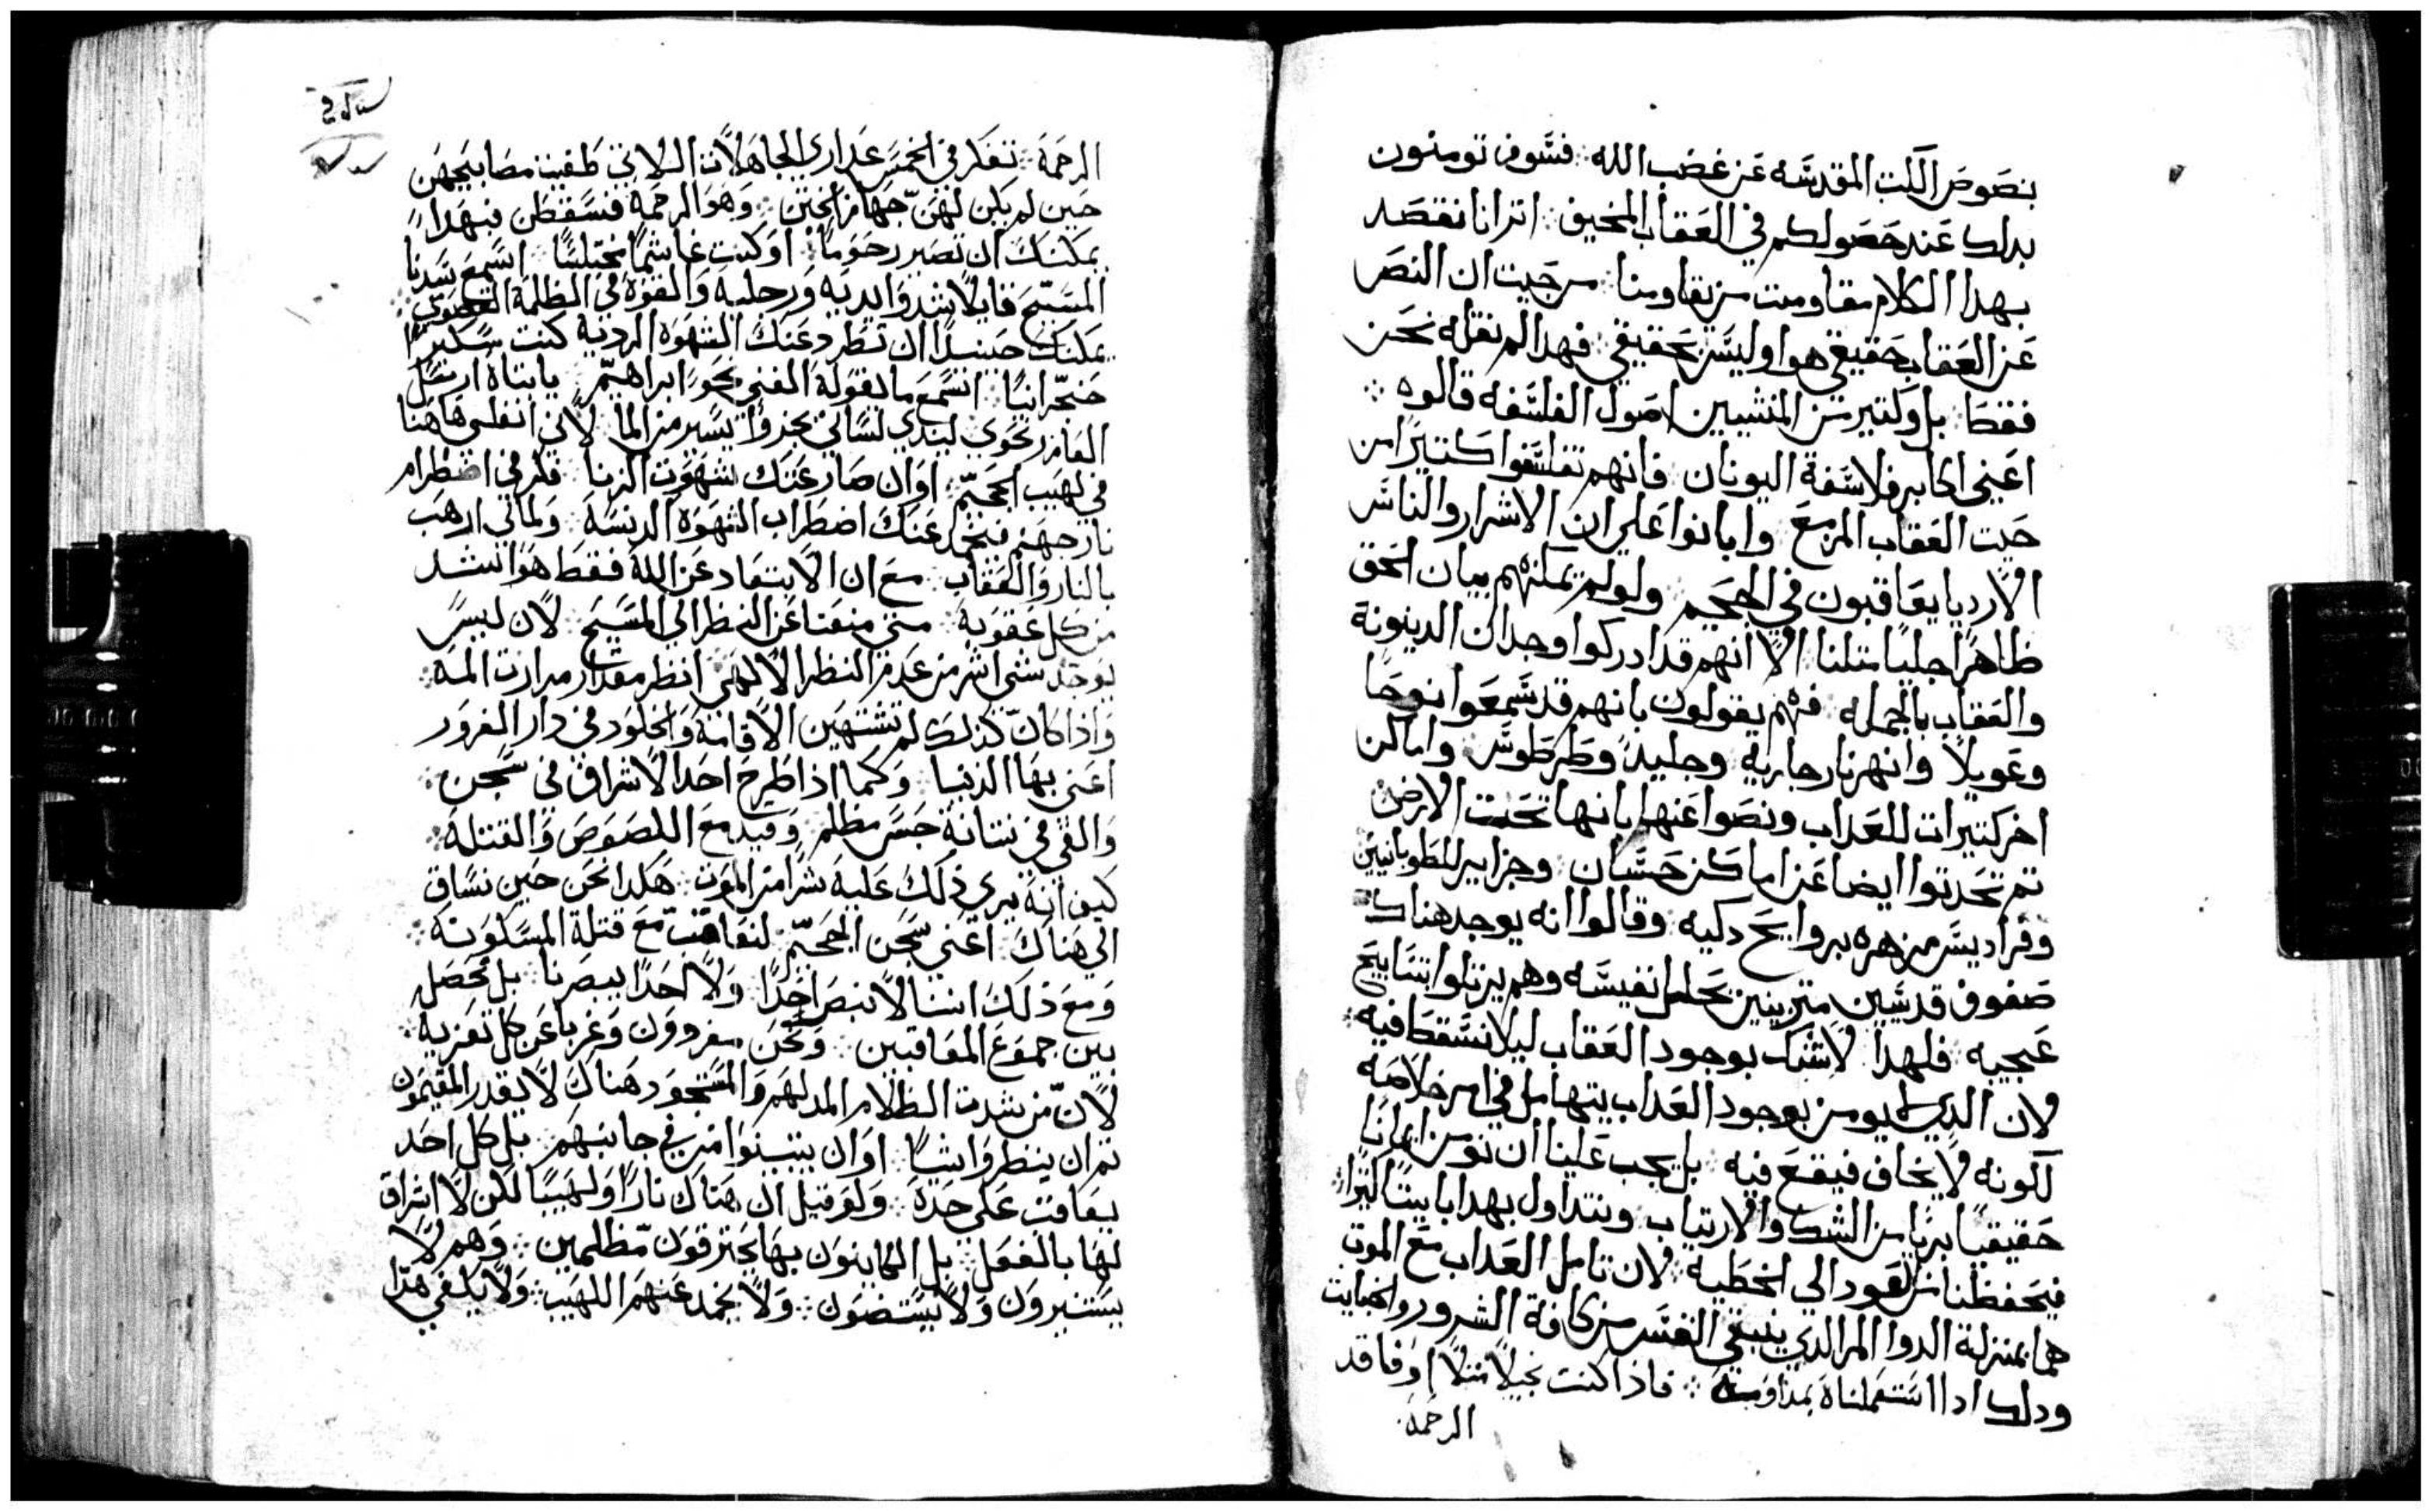 بنصوص الكتب المقدسه عن غضب الله ፨ فسوف تومنون
بدلك عند حصولكم في العقاب المخيف ፨ اترانا نقصد
بهدا الكلام مقاومت من يقاومنا ፨ من حيت ان النص
عن العقاب حقيقي هو او ليس بحقيقي ፨ فهدا لم نقله نحن
فقط ፨ بل وكتير من المنشيين اصول الفلسفه قالوه ፨
اعني اكابر فلاسفة اليونان ፨ فانهم تفلسفوا كتيرًا من
حيت العقاب المزمع ፨ وابانوا علي ان الاشرار والناس
الارديا يعاقبون في الجحيم ፨ ولو لم يمكنهم بيان الحق
ظاهرًا جليًا متلنا ፨ الا انهم قد ادركوا وجدان الدينونة
والعقاب بالجمله ፨ فهم يقولون بانهم قد سمعوا نوحًا
وعويلًا ፨ وانهر نار جاريه وجليد وطرطوس ፨ واماكن
اخر كتيرات للعداب ونصوا عنها بانها تحت الارض
تم تحدتوا ايضا عن اماكن حسان ፨ وجزاير للطوبانيين
وفراديس مزهره بروايح دكيه ፨ وقالوا انه يوجد هناك
صفوف قديسين متزينين بحلل نفيسه وهم يرتلوا تسابيح
عجيبه ፨ فلهدا لاشك بوجود العقاب ليلا نسقط فيه ፨
لان الدي لا يومن بوجود العداب يتهامل في امر خلاصه
لكونه لا يخاف فيقع فيه ፨ بل يجب علينا ان نومن ايمانًا
حقيقيًا بريًا من الشك والارتياب ፨ ونتداول بهدا بابيتًا كتيرًا ፨
فيحفظنا من العود الي الخطية ፨ لان تامل العداب مع الموت
هما بمنزلة الدوا المر الدي ينقي النفس من كافة الشرور والخبايت
ودلك ادا استعملناه بمداومة ፨ فادا كنت بخيلًا متلًا او فاقد
الرحمة
الرحمة ፨ تفكر في الخمس عداري الجاهلات اللاتي طفيت مصابيحهن
حين لم يكن لهن جهاز الختن ፨ وهو الرحمة فسقطن فبهدا
يمكنك ان تصير رحومًا ፨ او كنت غاشمًا مختلسًا ፨ اسمع سيدنا
المسيح قايلًا شدوا يديه ورجليه والقوه في الظلمة القصوي ፨
يمكنك حينيدًا ان تطرد عنك الشهوه الرديه كنت سكيرًا
حنجرانيًا ፨ اتسمع ما يقوله الغني نحو ابراهيم ፨ يا ابتاه ارسل
العازر نحوي ليندي لساني بجزوًا يسير من الما ፨ لاني انقلي هاهنا
في لهيب الجحيم ፨ او ان صارعتك شهوت الزنا ፨ فكر في اضطرام
نار جهنم فيخمد عنك اضطراب الشهوه الدنسه ፨ ولما لي ارهب
بالنار والعقاب ፨ مع ان الابتعاد عن الله فقط هو اشد
من كل عقوبة ፨ متي منعنا عن النظر الي المسيح ፨ لان ليس
يوجد شي اشر من عدم النظر الالهي ፨ انظر مقدار مرارت المه ፨
واذا كان كذلك لم تشتهين الاقامة والخلود في دار الغرور
اعني بها الدنيا ፨ وكما اذا طرح احد الاشراف في سجن ፨
والقي في نتانة حبس مظلم ፨ وقيد مع اللصوص والقتلة ፨
كيف انه يري ذلك عليه شرا من الموت ፨ هكدا نحن حين نساق
الي هناك ፨ اعني سجن الجحيم ፨ لنعاقب مع قتلة المسكونة ፨
ومع ذلك اننا لا نبصر احدًا ፨ ولا احدًا يبصرنا ፨ بل نحصل
بين جموع المعاقبين ፨ ونحن مفردون وغربا عن كل تعزية ፨
لان من شدت الظلام المدلهم والمسجور هناك لا يقدر المقيمون
تم ان ينظروا شيًا ፨ او ان يتبينوا من في جانبهم ፨ بل كل احد
يعاقب علي حدة ፨ ولو قيل ان هناك نارًا ولهيبًا لكن لا اشراق
لها بالفعل ፨ بل الكاينون بها يحترقون مظلمين ፨ وهم لا
يستنيرون ولا يستضون ፨ ولا يخمد عنهم اللهيب ፨ ولا يكفي هذا